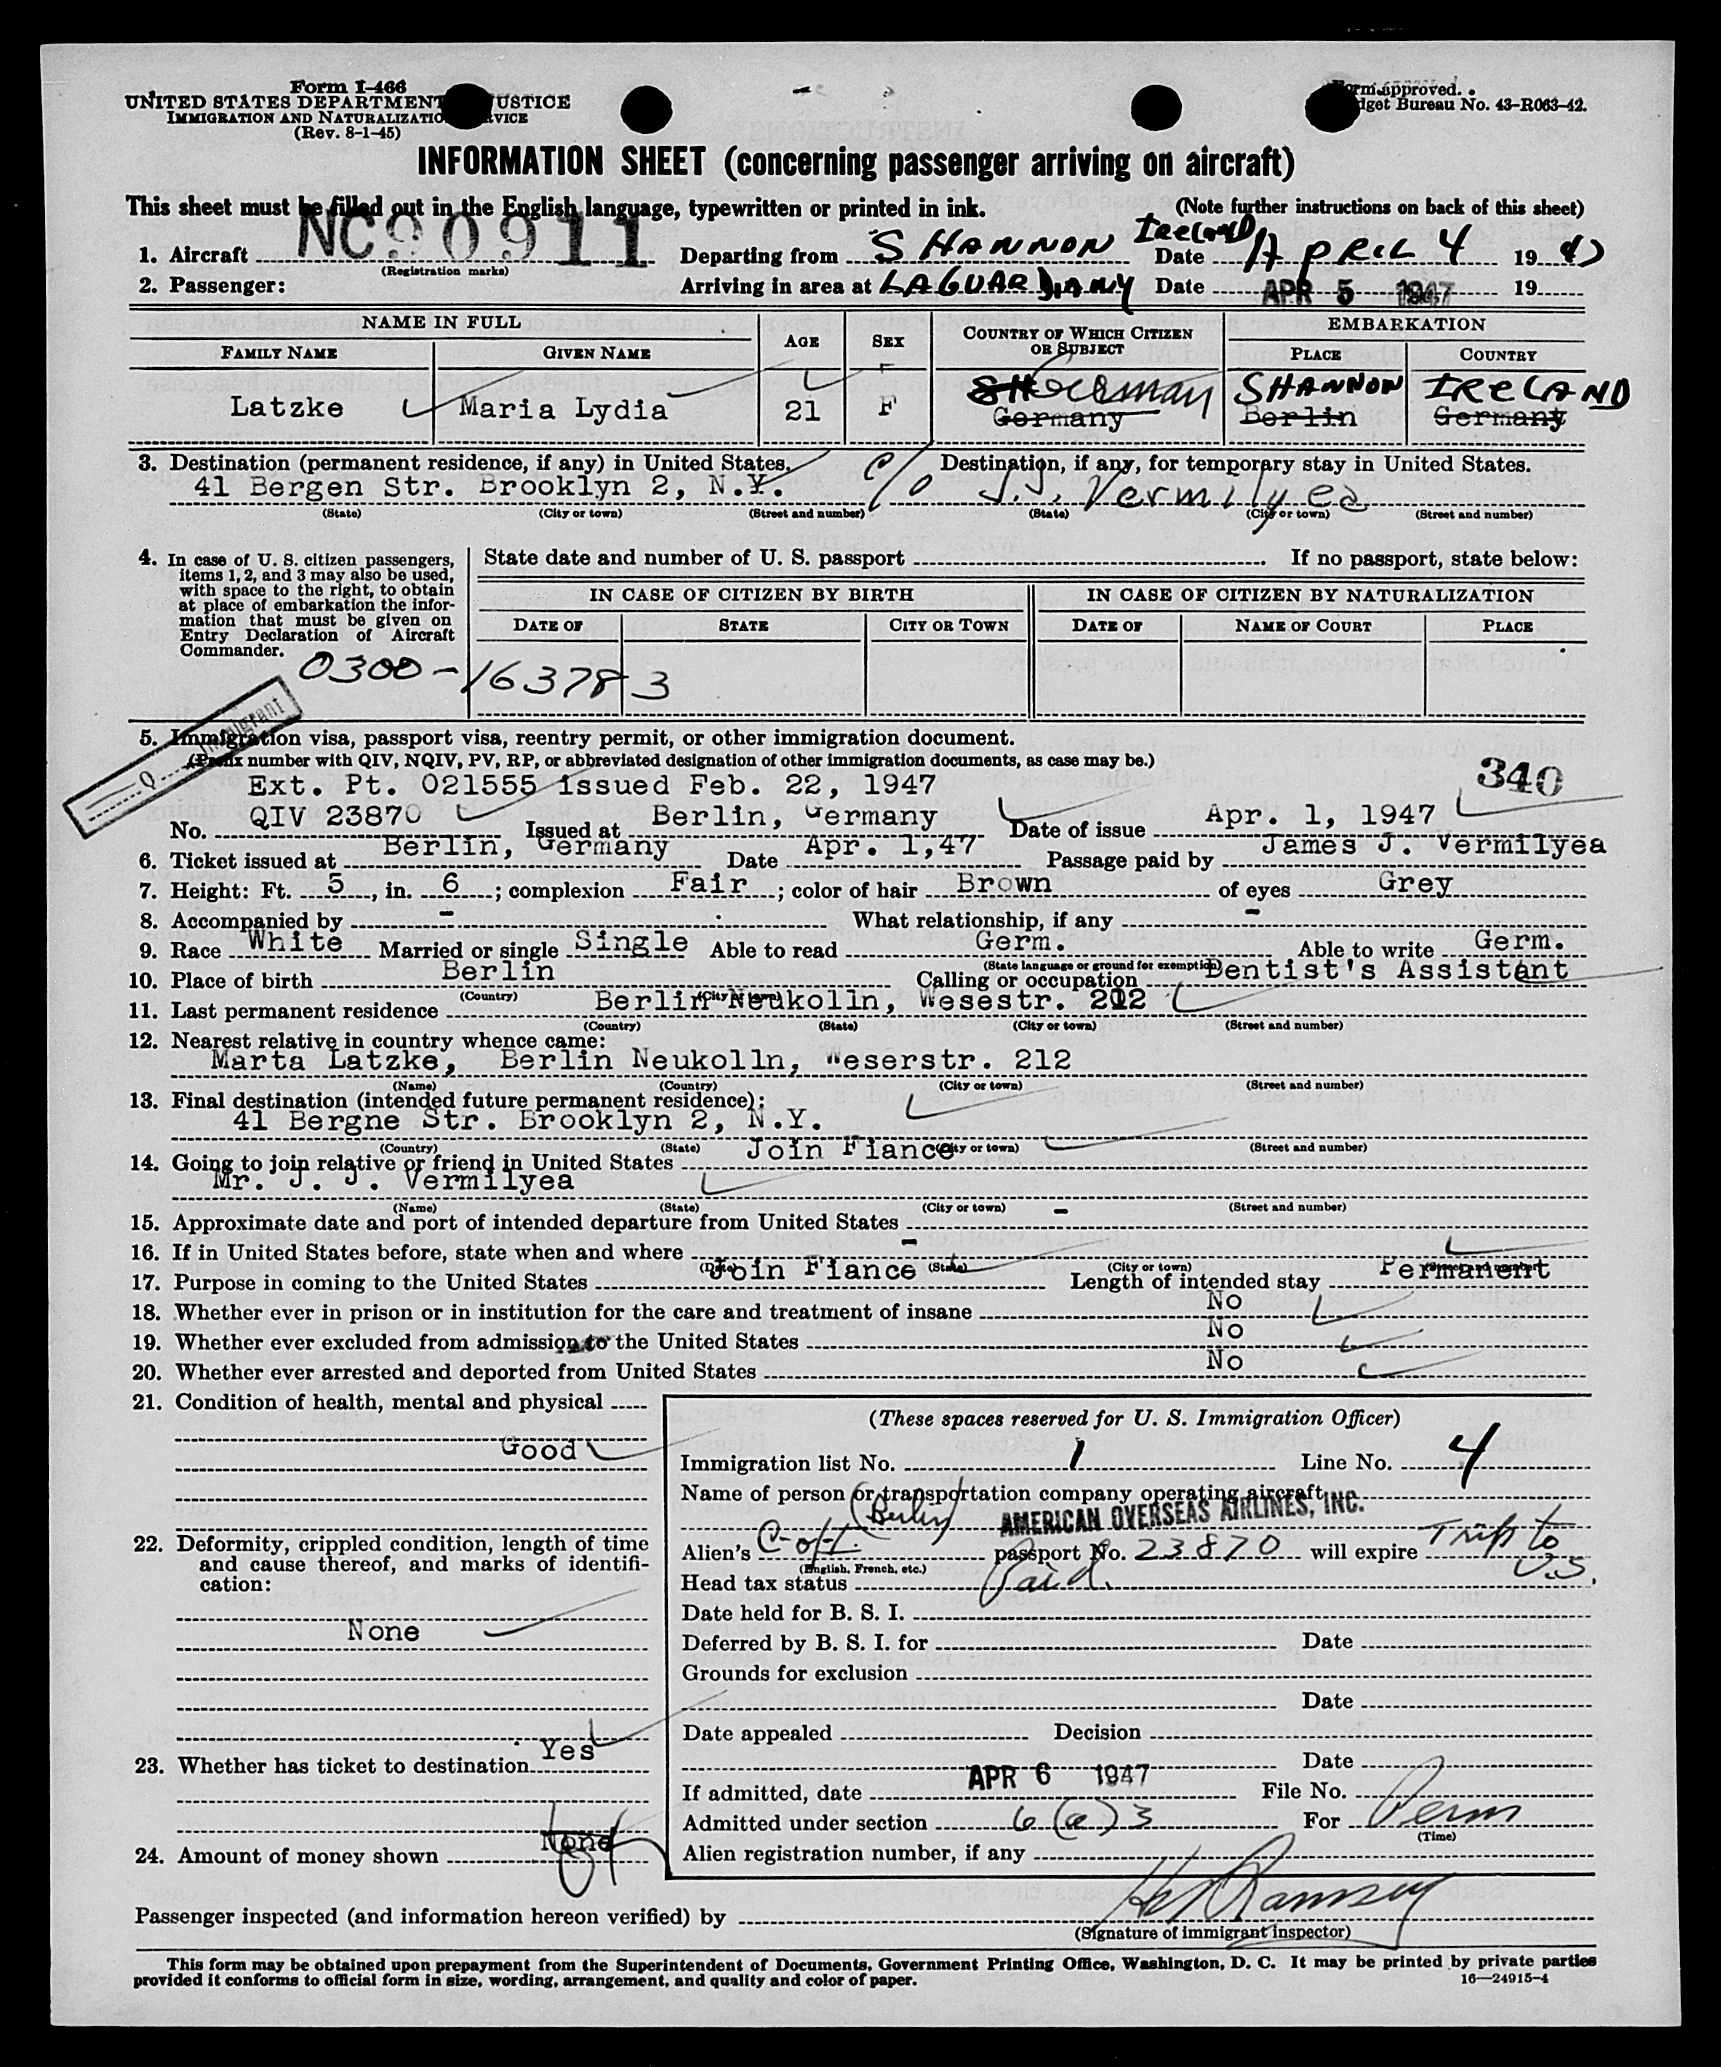 Form I-466
UNITED STATES DEPARTMENT USTICE
IMMIGRATION AND NATURALIZATIO VICE
(Rev. 8-1-45)
rm approved.
dget Bureau No. 43-R063-42.
INFORMATION SHEET (concerning passenger arriving on aircraft)
This sheet must be filled out in the English language, typewritten or printed in ink. (Note further instructions on back of this sheet)
1. Aircraft NC90911 (Registration marks) Departing from SHANNON IRELAND Date APRIL 4 1947
2. Passenger: Arriving in area at LAGUARDIA NY Date APR 5 1947 19
NAME IN FULL
FAMILY NAME GIVEN NAME AGE SEX COUNTRY OF WHICH CITIZEN OR SUBJECT EMBARKATION PLACE COUNTRY
German SHANNON IRELAND
Latzke Maria Lydia 21 F Germany Berlin Germany
3. Destination (permanent residence, if any) in United States. Destination, if any, for temporary stay in United States.
41 Bergen Str. Brooklyn 2, N.Y. c/o J.J. Vermilyea
(State) (City or town) (Street and number) (State) (City or town) (Street and number)
4. In case of U. S. citizen passengers, items 1, 2, and 3 may also be used, with space to the right, to obtain at place of embarkation the information that must be given on Entry Declaration of Aircraft Commander.
State date and number of U. S. passport If no passport, state below:
IN CASE OF CITIZEN BY BIRTH IN CASE OF CITIZEN BY NATURALIZATION
DATE OF STATE CITY OR TOWN DATE OF NAME OF COURT PLACE
0300-163783
Q Immigrant
5. Immigration visa, passport visa, reentry permit, or other immigration document.
(Prefix number with QIV, NQIV, PV, RP, or abbreviated designation of other immigration documents, as case may be.)
340
Ext. Pt. 021555 issued Feb. 22, 1947
No. QIV 23870 Issued at Berlin, Germany Date of issue Apr. 1, 1947
6. Ticket issued at Berlin, Germany Date Apr. 1,47 Passage paid by James J. Vermilyea
7. Height: Ft. 5, in. 6; complexion Fair; color of hair Brown of eyes Grey
8. Accompanied by - What relationship, if any -
9. Race White Married or single Single Able to read Germ. Able to write Germ.
(State language or ground for exemption)
10. Place of birth Berlin Calling or occupation Dentist's Assistant
(Country) (City or town)
11. Last permanent residence Berlin Neukolln, Wesestr. 212
(Country) (State) (City or town) (Street and number)
12. Nearest relative in country whence came:
Marta Latzke, Berlin Neukolln, Weserstr. 212
(Name) (Country) (City or town) (Street and number)
13. Final destination (intended future permanent residence):
41 Bergne Str. Brooklyn 2, N.Y.
(Country) (State) (City or town) (Street and number)
14. Going to join relative or friend in United States Join Fiance
Mr. J. J. Vermilyea
(Name) (State) (City or town) (Street and number)
15. Approximate date and port of intended departure from United States -
16. If in United States before, state when and where -
(Date) (State) (City or town) (Street and number)
17. Purpose in coming to the United States Join Fiance Length of intended stay Permanent
18. Whether ever in prison or in institution for the care and treatment of insane No
19. Whether ever excluded from admission to the United States No
20. Whether ever arrested and deported from United States No
21. Condition of health, mental and physical
Good
22. Deformity, crippled condition, length of time and cause thereof, and marks of identification:
None
23. Whether has ticket to destination Yes
24. Amount of money shown None
(These spaces reserved for U. S. Immigration Officer)
Immigration list No. 1 Line No. 4
Name of person or transportation company operating aircraft
(Berlin) AMERICAN OVERSEAS AIRLINES, INC.
Alien's C of I. passport No. 23870 will expire Trip to U.S.
(English, French, etc.)
Head tax status Paid.
Date held for B. S. I.
Deferred by B. S. I. for Date
Grounds for exclusion
Date
Date appealed Decision
Date
If admitted, date APR 6 1947 File No.
Admitted under section 6(a)3 For Perm
(Time)
Alien registration number, if any
Passenger inspected (and information hereon verified) by Ramsey
(Signature of immigrant inspector)
This form may be obtained upon prepayment from the Superintendent of Documents, Government Printing Office, Washington, D. C. It may be printed by private parties
provided it conforms to official form in size, wording, arrangement, and quality and color of paper. 16—24915-4